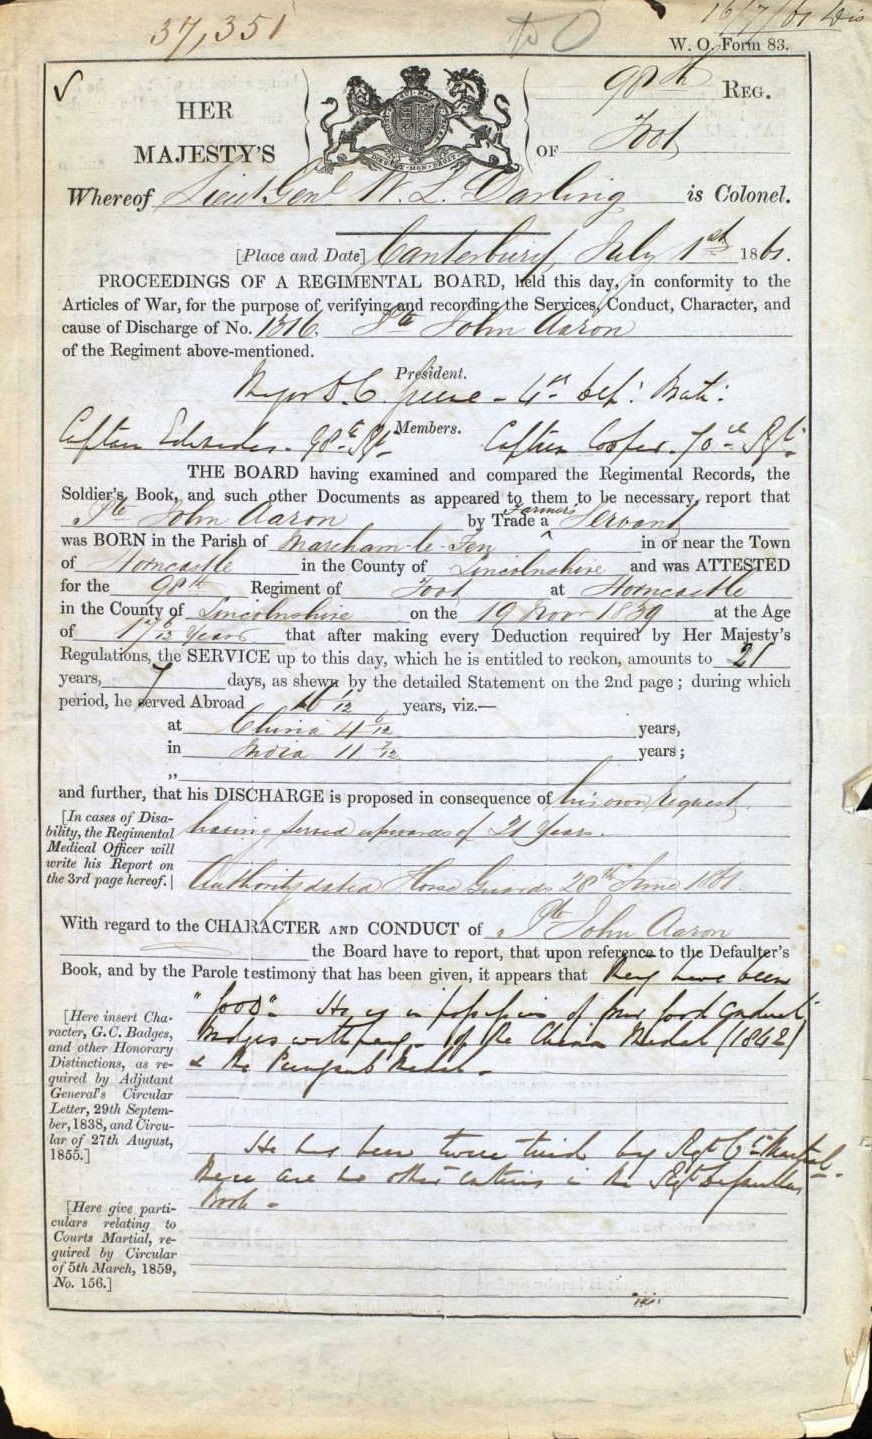 37,351
16/7/61 Dis
W. O. Form 83.
HER
MAJESTY'S
98th REG.
OF Foot
DIEU ET MON DROIT
Whereof Lieut. Genl W. L. Darling is Colonel.
[Place and Date] Canterbury July 1st 1861.
PROCEEDINGS OF A REGIMENTAL BOARD, held this day, in conformity to the
Articles of War, for the purpose of verifying and recording the Services, Conduct, Character, and
cause of Discharge of No. 1316. Pte John Aaron
of the Regiment above-mentioned.
President.
Major D. C. Greene - 4th Dep: Batt:
Members.
Captain Edwardes - 98th Rgt - Captain Cooper - 70th Rgt -
THE BOARD having examined and compared the Regimental Records, the
Soldier's Book, and such other Documents as appeared to them to be necessary, report that
Pte John Aaron by Trade a Farmers Servant
was BORN in the Parish of Mareham-le-Fen in or near the Town
of Horncastle in the County of Lincolnshire and was ATTESTED
for the 98th Regiment of Foot at Horncastle
in the County of Lincolnshire on the 19 Novr 1839 at the Age
of 17 6/12 Years that after making every Deduction required by Her Majesty's
Regulations, the SERVICE up to this day, which he is entitled to reckon, amounts to 21
years, 7 days, as shewn by the detailed Statement on the 2nd page; during which
period, he served Abroad 16 1/12 years, viz.—
at China 4 6/12 years,
in India 11 7/12 years;
„
and further, that his DISCHARGE is proposed in consequence of his own request
[In cases of Disa-
bility, the Regimental
Medical Officer will
write his Report on
the 3rd page hereof.]
having served upwards of 21 Years.
Authority dated Horse Guards 28th June 1861.
With regard to the CHARACTER AND CONDUCT of Pte John Aaron
the Board have to report, that upon reference to the Defaulter's
Book, and by the Parole testimony that has been given, it appears that they have been
[Here insert Cha-
racter, G.C. Badges,
and other Honorary
Distinctions, as re-
quired by Adjutant
General's Circular
Letter, 29th Septem-
ber, 1838, and Circu-
lar of 27th August,
1855.]
"Good". He is in possession of four Good Conduct
Badges with pay - of the China Medal (1842)
& the Punjaub Medal -
He has been twice tried by Regt Ct Martial -
there are no other entries in the Regt Defaulters
Book -
[Here give parti-
culars relating to
Courts Martial, re-
quired by Circular
of 5th March, 1859,
No. 156.]